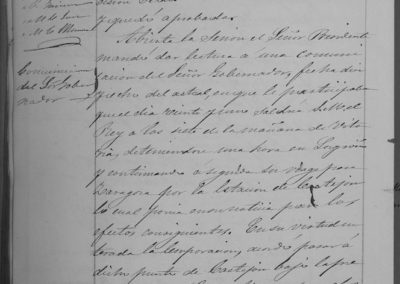 y quedó aprobada.
Abierta la Sesion el Señor Presidente
mandó dar lectura á una comuni-
cacion del Señor Gobernador, fecha diez
y ocho del actual, en que le participaba
que el dia veinte y uno saldria S. M. el
Rey a las siete de la mañana de Vito-
ria, deteniendose una hora en Logroño
y continuando á seguida su viage para
Zaragoza por la Estacion de Castejon
lo cual ponia en su noticia para los
efectos consiguientes. En su virtud en-
terada la Corporacion, acordó pasar á
dicho punto de Castejon bajo la pre
Comunicacion
del Sor. Gober-
nador